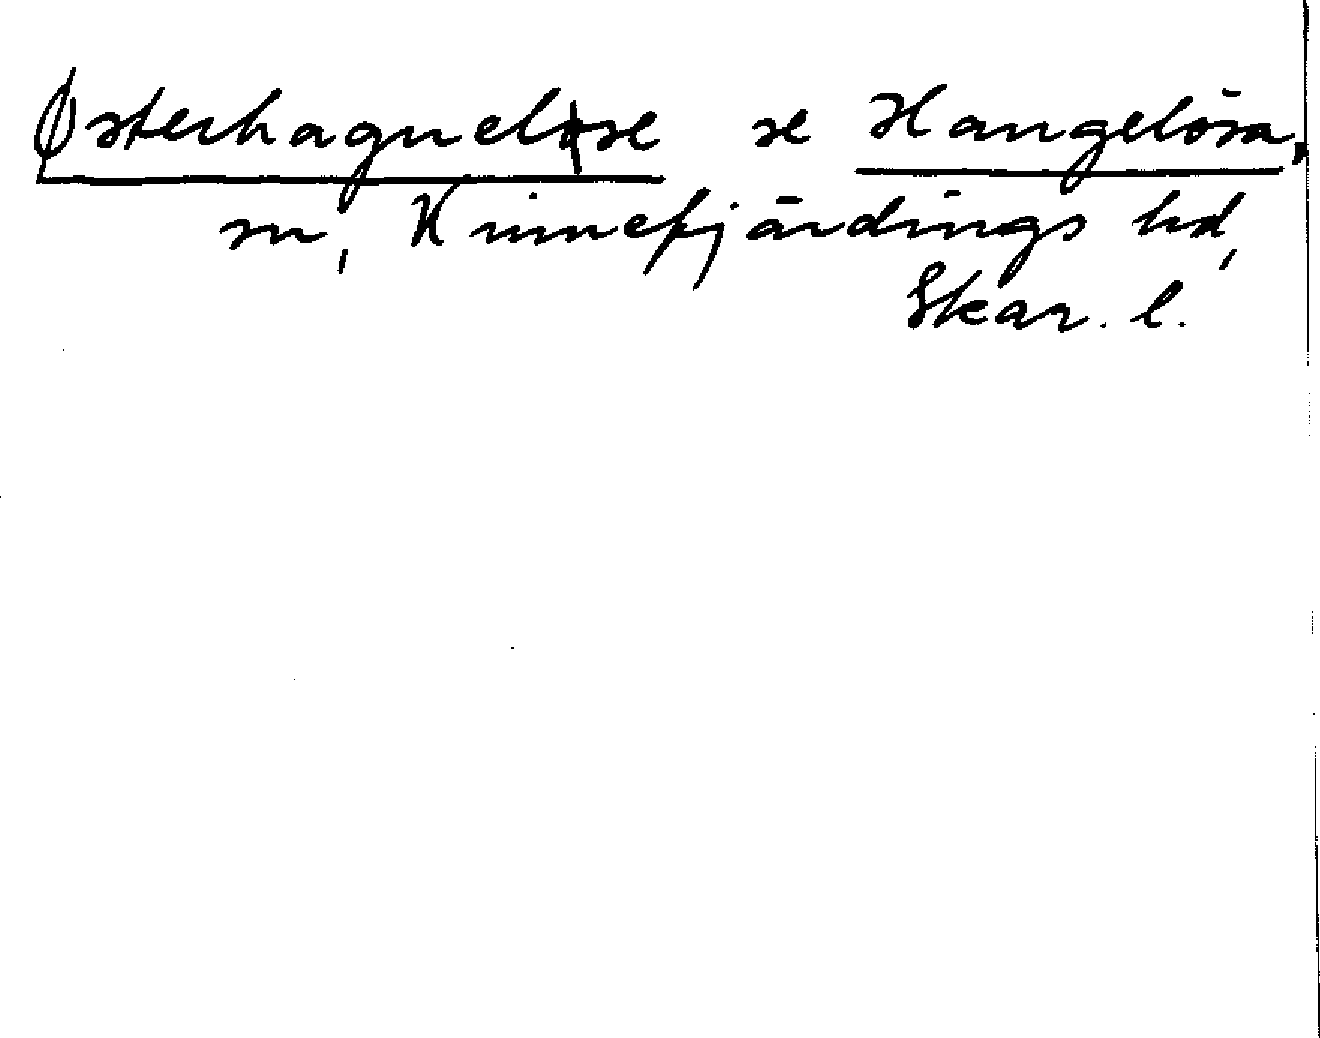 Østerhagneløse se Hangelösa,
sn, Kinnefjärdings hd,
Skar. l.